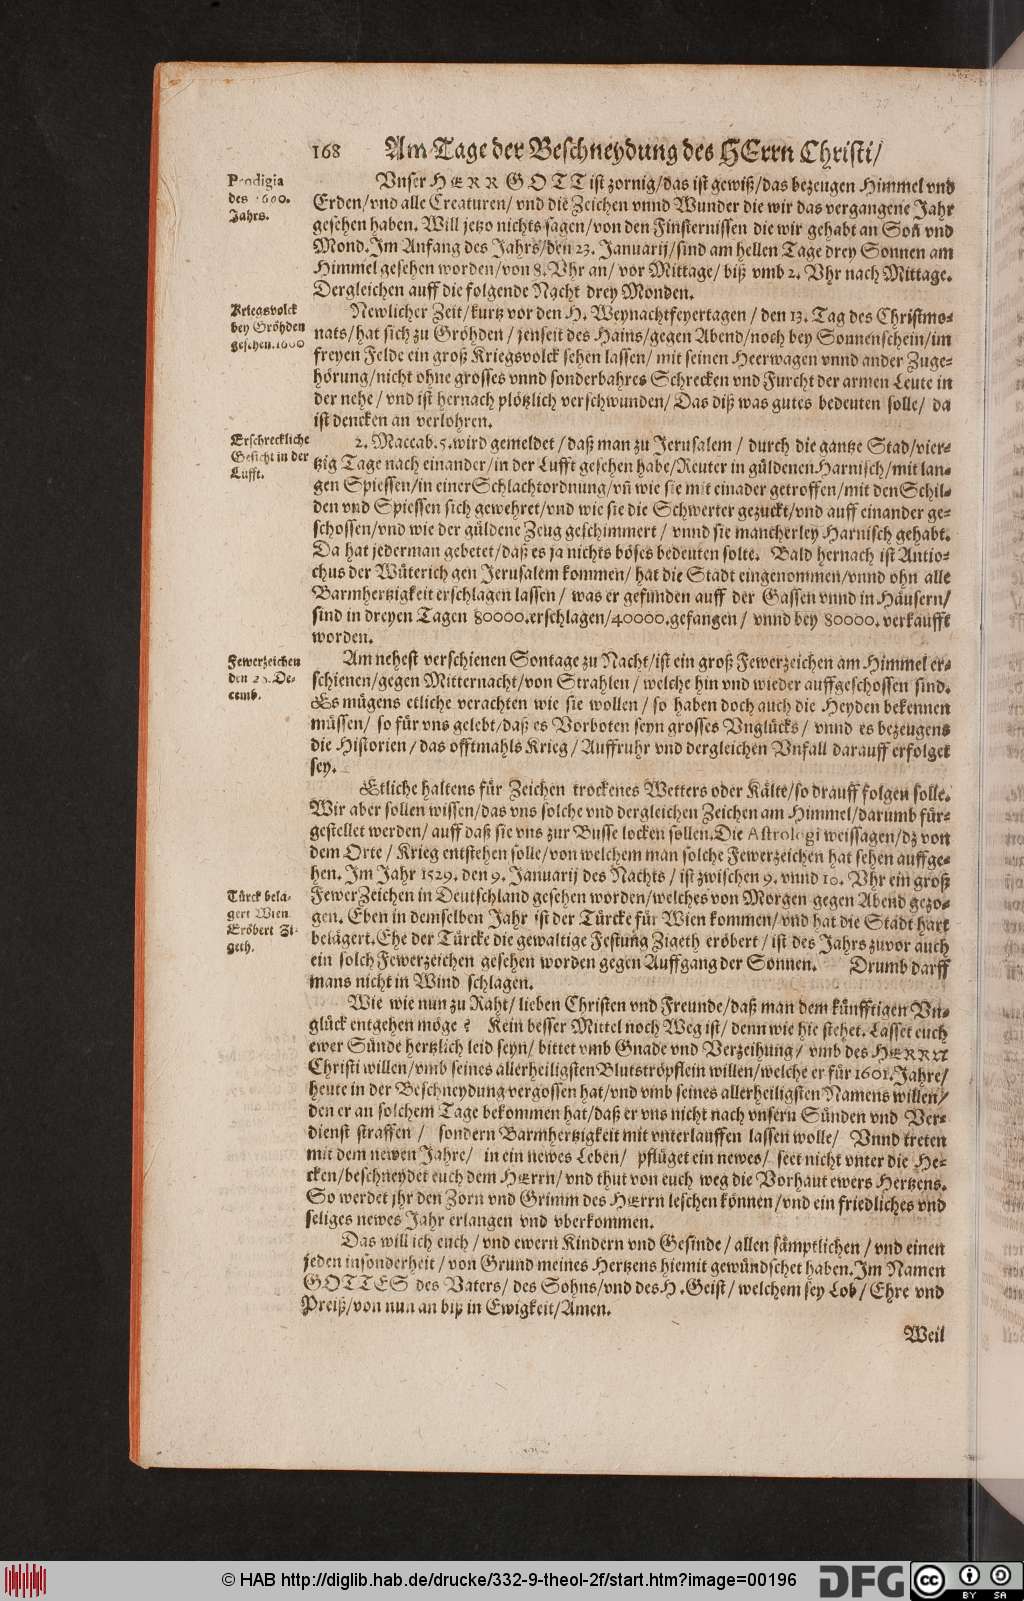 168 Am Tage der Beschneydung des HErrn Christi/
Prodigia
des 1600.
Jahrs.
Vnser HERR GOTT ist zornig/das ist gewiß/das bezeugen Himmel vnd
Erden/vnd alle Creaturen/ vnd die Zeichen vnnd Wunder die wir das vergangene Jahr
gesehen haben. Will jetzo nichts sagen/von den Finsternissen die wir gehabt an Soñ vnd
Mond. Im Anfang des Jahrs/den 23. Januarij/sind am hellen Tage drey Sonnen am
Himmel gesehen worden/von 8. Vhr an/ vor Mittage/ biß vmb 2. Vhr nach Mittage.
Dergleichen auff die folgende Nacht drey Monden.
Kriegsvolck
bey Gröhden
gesehen. 1600
Newlicher Zeit/kurtz vor den H. Weynachtfeyertagen / den 13. Tag des Christmo-
nats/hat sich zu Gröhden / jenseit des Hains/gegen Abend/noch bey Sonnenschein/im
freyen Felde ein groß Kriegsvolck sehen lassen/ mit seinen Heerwagen vnnd ander Zuge-
hörung/nicht ohne grosses vnnd sonderbahres Schrecken vnd Furcht der armen Leute in
der nehe / vnd ist hernach plötzlich verschwunden/ Das diß was gutes bedeuten solle/ da
ist dencken an verlohren.
Erschreckliche
Gesicht in der
Lufft.
2. Maccab. 5. wird gemeldet / daß man zu Jerusalem / durch die gantze Stad/vier-
tzig Tage nach einander/in der Lufft gesehen habe/Reuter in güldenen Harnisch/mit lan-
gen Spiessen/in einer Schlachtordnung/vñ wie sie mit einader getroffen/mit den Schil-
den vnd Spiessen sich gewehret/vnd wie sie die Schwerter gezuckt/vnd auff einander ge-
schossen/vnd wie der güldene Zeug geschimmert / vnnd sie mancherley Harnisch gehabt.
Da hat jederman gebetet/daß es ja nichts böses bedeuten solte. Bald hernach ist Antio-
chus der Wüterich gen Jerusalem kommen/ hat die Stadt eingenommen/vnnd ohn alle
Barmhertzigkeit erschlagen lassen / was er gefunden auff der Gassen vnnd in Häusern/
sind in dreyen Tagen 80000. erschlagen/40000. gefangen / vnnd bey 80000. verkaufft
worden.
Fewerzeichen
den 2 . De-
cemb.
Am nehest verschienen Sontage zu Nacht/ist ein groß Fewerzeichen am Himmel er-
schienen/gegen Mitternacht/von Strahlen / welche hin vnd wieder auffgeschossen sind.
Es mügens etliche verachten wie sie wollen / so haben doch auch die Heyden bekennen
müssen/ so für vns gelebt/daß es Vorboten seyn grosses Vnglücks / vnnd es bezeugens
die Historien / das offtmahls Krieg / Auffruhr vnd dergleichen Vnfall darauff erfolget
sey.
Etliche haltens für Zeichen trockenes Wetters oder Kälte/so drauff folgen solle.
Wir aber sollen wissen/das vns solche vnd dergleichen Zeichen am Himmel/darumb für-
gestellet werden/ auff daß sie vns zur Busse locken sollen. Die Astrologi weissagen/dz von
dem Orte / Krieg entstehen solle/von welchem man solche Fewerzeichen hat sehen auffge-
hen. Im Jahr 1529. den 9. Januarij des Nachts / ist zwischen 9. vnnd 10. Vhr ein groß
Türck bela-
gert Wien
Eröbert Zi-
geth.
FewerZeichen in Deutschland gesehen worden/welches von Morgen gegen Abend gezo-
gen. Eben in demselben Jahr ist der Türcke für Wien kommen/ vnd hat die Stadt hart
belägert. Ehe der Türcke die gewaltige Festung Zigeth eröbert / ist des Jahrs zuvor auch
ein solch Fewerzeichen gesehen worden gegen Auffgang der Sonnen. Drumb darff
mans nicht in Wind schlagen.
Wie wie nun zu Raht/ lieben Christen vnd Freunde/daß man dem künfftigen Vn-
glück entgehen möge? Kein besser Mittel noch Weg ist/ denn wie hie stehet. Lasset euch
ewer Sünde hertzlich leid seyn/ bittet vmb Gnade vnd Verzeihung/ vmb des HERRN
Christi willen/vmb seines allerheiligsten Blutströpflein willen/welche er für 1601. Jahre/
heute in der Beschneydung vergossen hat/vnd vmb seines allerheiligsten Namens willen/
den er an solchem Tage bekommen hat/daß er vns nicht nach vnsern Sünden vnd Ver-
dienst straffen / sondern Barmhertzigkeit mit vnterlauffen lassen wolle/ Vnnd treten
mit dem newen Jahre/ in ein newes Leben/ pflüget ein newes/ seet nicht vnter die He-
cken/beschneydet euch dem HErrn/ vnd thut von euch weg die Vorhaut ewers Hertzens.
So werdet jhr den Zorn vnd Grimm des HErrn leschen können/vnd ein friedliches vnd
seliges newes Jahr erlangen vnd vberkommen.
Das will ich euch / vnd ewern Kindern vnd Gesinde / allen sämptlichen / vnd einen
jeden insonderheit / von Grund meines Hertzens hiemit gewündschet haben. Im Namen
GOTTES des Vaters/ des Sohns/vnd des H. Geist / welchem sey Lob / Ehre vnd
Preiß/von nun an biß in Ewigkeit/Amen.
Weil
© HAB http://diglib.hab.de/drucke/332-9-theol-2f/start.htm?image=00196
DFG
CC BY SA